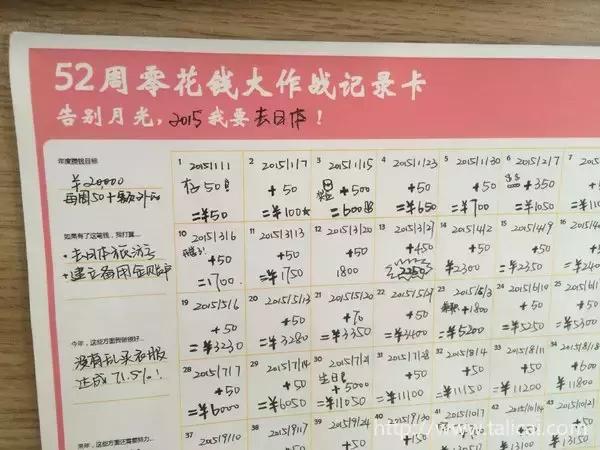 52周零花钱大作战记录卡
告别月光，2015我要去日本！
年度攒钱目标
¥20,000
每周50+额外
如果有了这笔钱，我打算...
·去日本旅行
·建立备用金账户
今年，这些方面我做很好...
没有乱买衣服
达成71.5%！
来年，这些方面还需努力...
1 2015/1/1
存50
=¥50
2 2015/1/7
+50
=¥100
3 2015/1/15
+500
=600
4 2015/1/23
+50
=¥650
5 2015/1/30
+50
=¥700
6 2015/2/7
+350
=¥1050
7
10 2015/3/6
+50
=1700.
11 2015/3/13
+50
=¥1750
12 2015/3/20
+50
1800
13 2015/3/27
+450
2250
14 2015/4/2
+50
¥2300
15 2015/4/9
+50
=¥2350
16
19 2015/5/6
+50
=¥3230
20 2015/5/13
+50
=¥3280
21 2015/5/20
+70
=¥3350
22 2015/5/27
+50
=¥3400
23
+1800
=¥5200
24 2015/6/10
+50
=¥5250
25
+50
=¥5300
28 2015/7/7
+50
=¥6000
29 2015/7/14
+50
=¥6050
30 2015/7/21
生日
+5000
=¥11050
31 2015/7/28
+50
=¥11100
32 2015/8/4
+50
=¥11150
33 2015/8/11
+50
=¥11200
34 2015/8/18
+600
=¥11800
37 2015/9/10
38 2015/9/17
+50
39 2015/9/24
+50
40 2015/9/30
+150
41 2015/10/7
+50
42 2015/10/14
+50
¥13100
43 2015/10/21
+50
¥13150
http://www.talicai.com